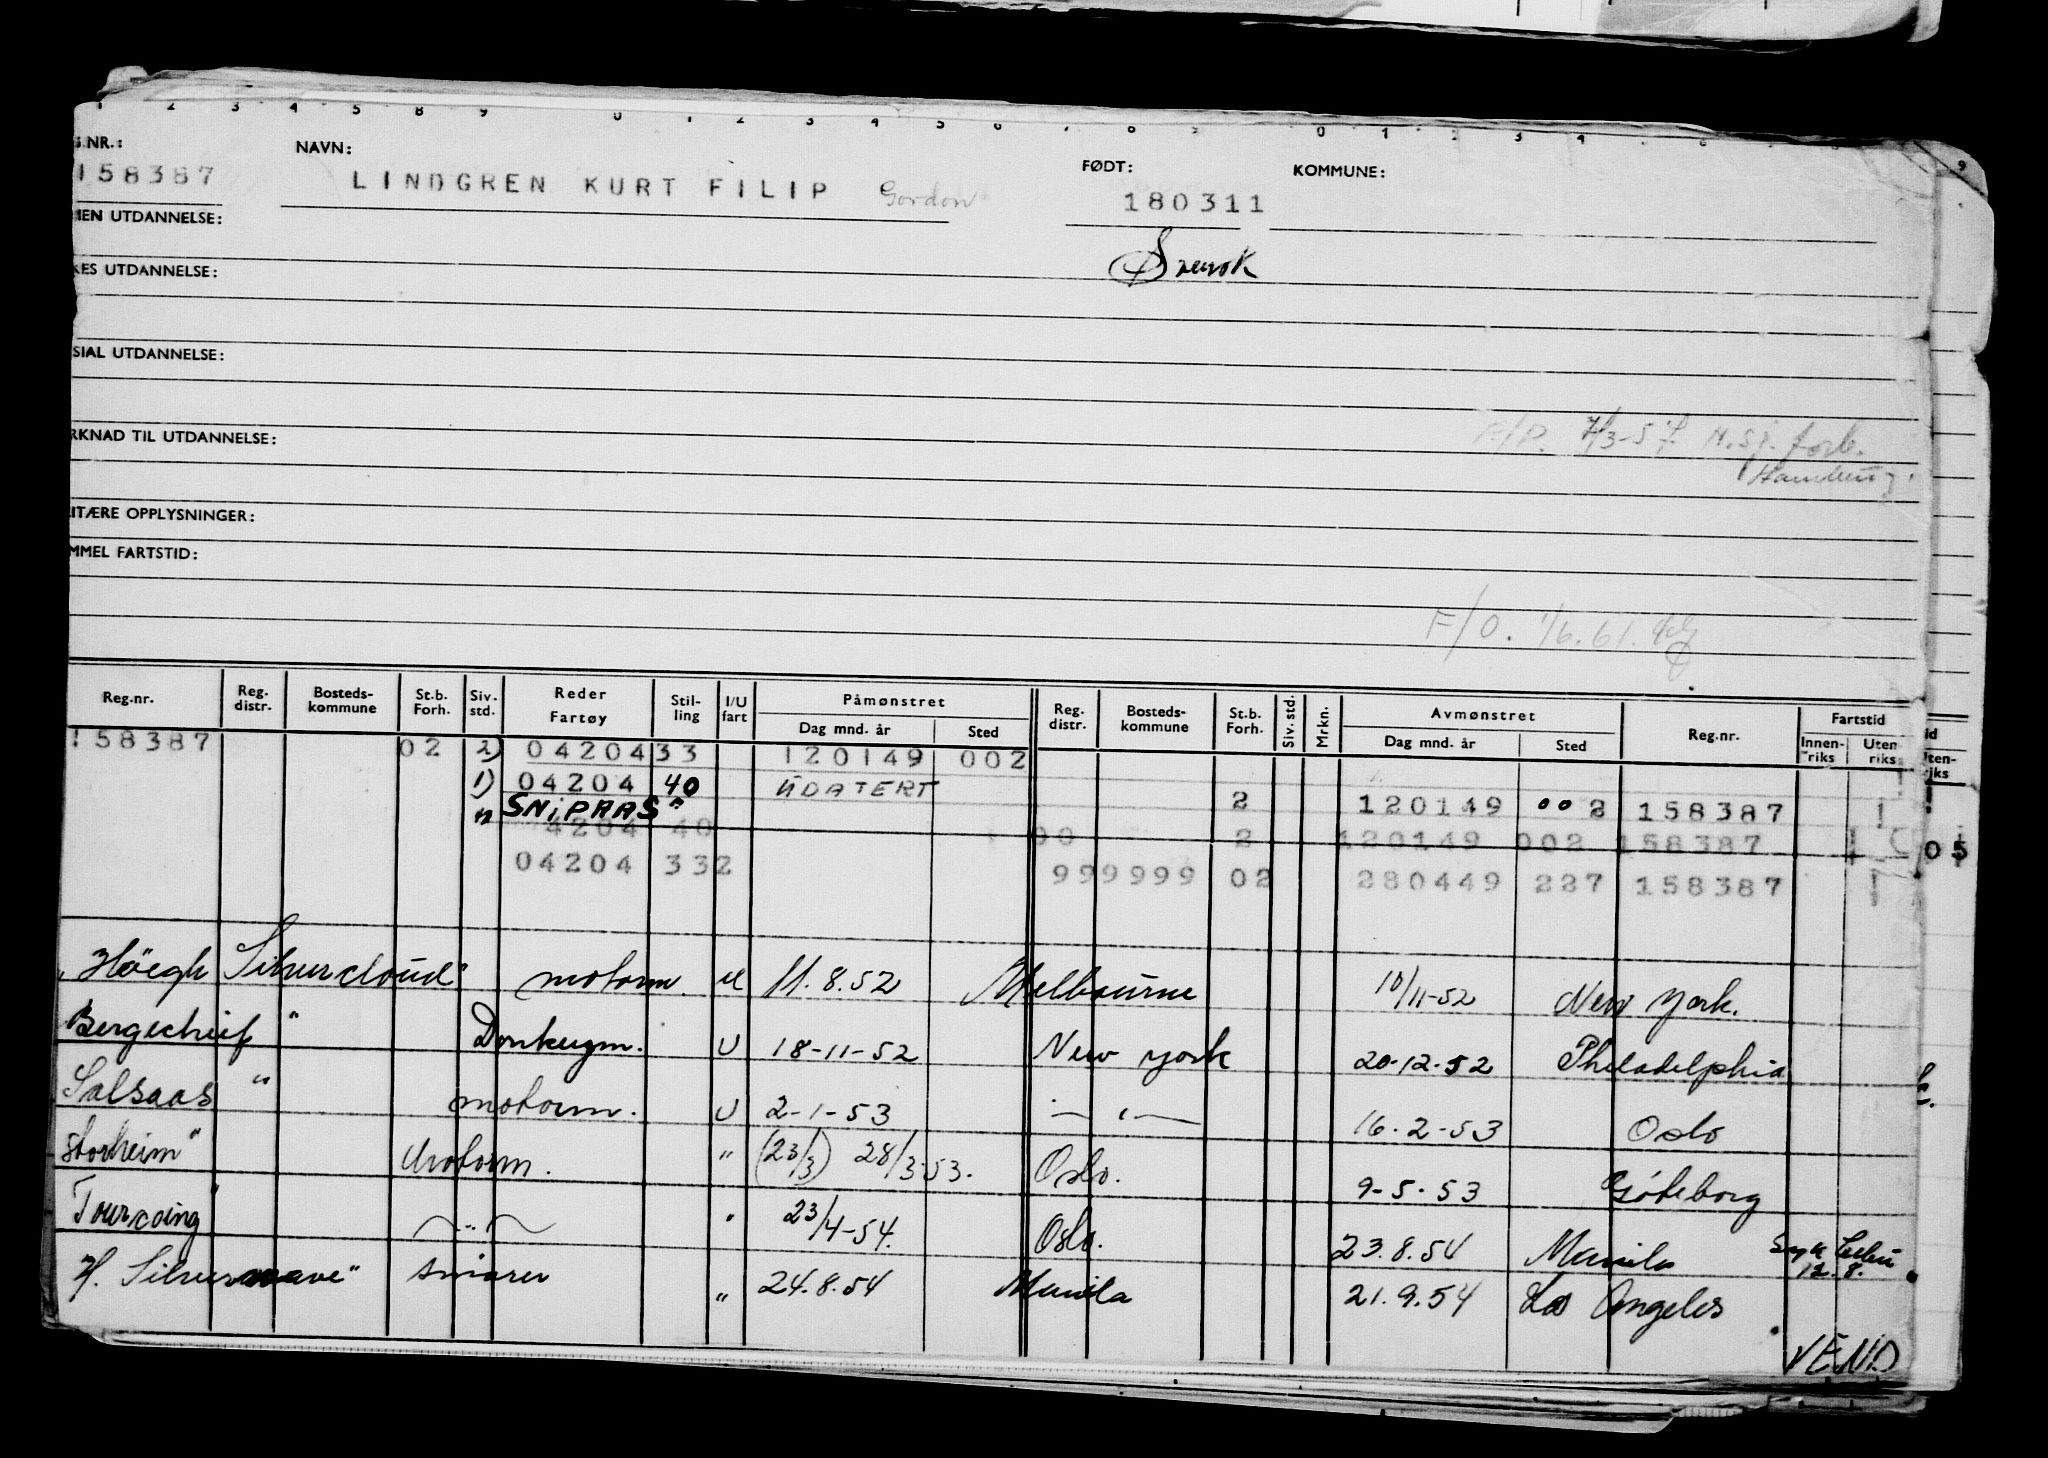 G.NR.: NAVN: FØDT: KOMMUNE:
158387 LINDGREN KURT FILIP Gordon 180311
MEN UTDANNELSE:
Svensk
KES UTDANNELSE:
SIAL UTDANNELSE:
RKNAD TIL UTDANNELSE:
7/3-57 N.Sj. fork.
Hamburg.
ITÆRE OPPLYSNINGER:
MMEL FARTSTID:
F/O. 1/6.61.
Reg.nr. Reg. distr. Bosteds-kommune St.b. Forh. Siv. std. Reder Fartøy Stil-ling I/U fart Påmønstret Dag mnd. år Sted Reg. distr. Bosteds-kommune St.b. Forh. Siv. std. Mrkn. Avmønstret Dag mnd. år Sted Reg.nr. Fartstid Innen-riks Uten riks
158387 02 2) 04204 33 120149 002
1) 04204 40 UDATERT
" SNIPAAS" 2 120149 002 158387
4204 40 00 2 120149 002 158387 05
04204 332 999999 02 280449 227 158387
"Höegh Silvercloud" motorm. U 11.8.52 Melbourne 10/11-52 New York.
Bergechief " Donkeym. U 18-11-52 New York 20-12-52 Philadelphia
Salsaas " motorm. U 2-1-53 — " — 16-2-53 Oslo
Storheim" Motorm. " (23/3) 28/3-53. Oslo. 9-5-53 Göteborg
Tourcoing" — " — " 23/4-54. Oslo. 23.8.54 Manila Syk Cebu 12.8.
H. Silverwave" smører " 24.8.54 Manila 21.9.54 Los Angeles
VEND